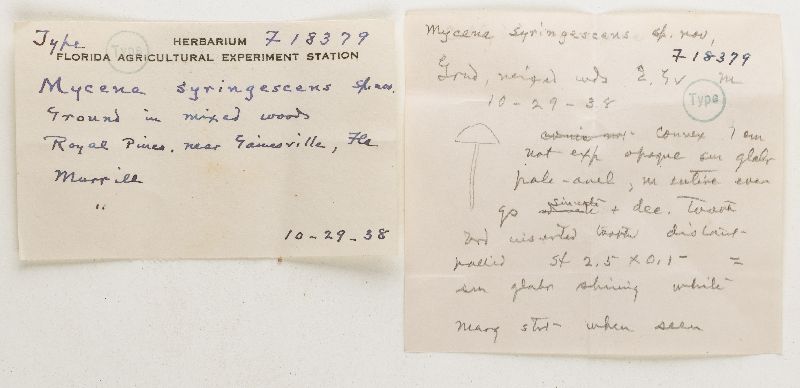 Type F 18379
Type
HERBARIUM
FLORIDA AGRICULTURAL EXPERIMENT STATION
Mycena syringescens sp. nov.
Ground in mixed woods
Royal Pines, near Gainesville, Fla
Murrill
"
10-29-38
Mycena syringescens sp. nov,
F 18379
Grnd, mixed wds E. Gv M
10-29-38
Type
convex 1 cm
not exp opaque sm glabr
pale-avel, m entire even
gp sinuate + dec. tooth
med inserted tooth distant
pallid St 2.5 x 0.15 =
sm glabr shining white
Marg stri when seen